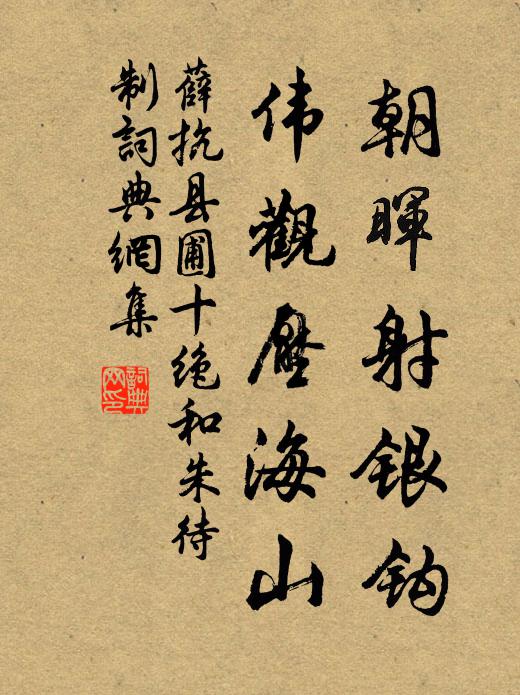 朝暉射银钩
伟觀壓海山
薛抗县圃十绝和朱待
制詞典網集
詞典网印